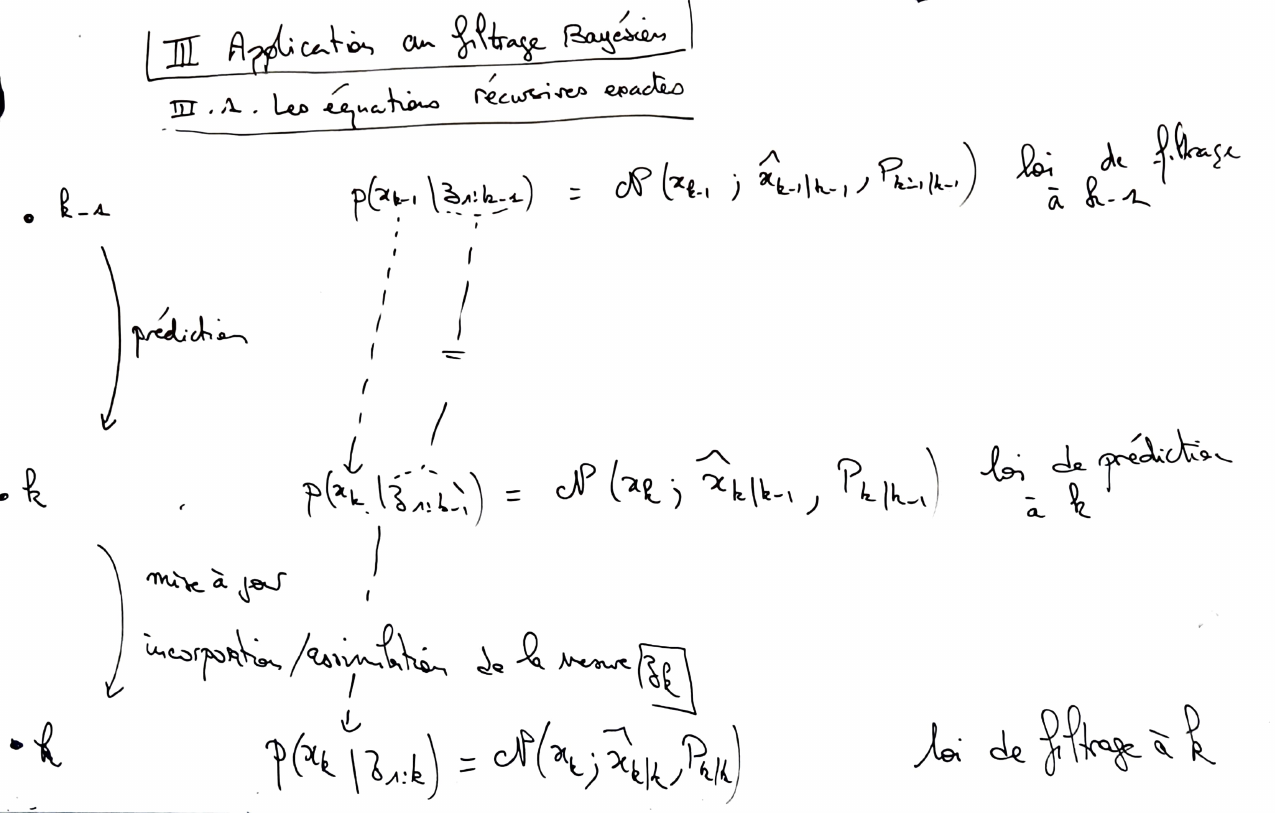 III Application au filtrage Bayésien
III.1. Les équations récursives exactes
• k-1 p(x_{k-1} | z_{1:k-1}) = N(x_{k-1} ; x̂_{k-1|k-1}, P_{k-1|k-1}) loi de filtrage
à k-1
prédiction
=
• k p(x_k | z_{1:k-1}) = N(x_k ; x̂_{k|k-1}, P_{k|k-1}) loi de prédiction
à k
mise à jour
incorporation/assimilation de la mesure z_k
• k p(x_k | z_{1:k}) = N(x_k ; x̂_{k|k}, P_{k|k}) loi de filtrage à k